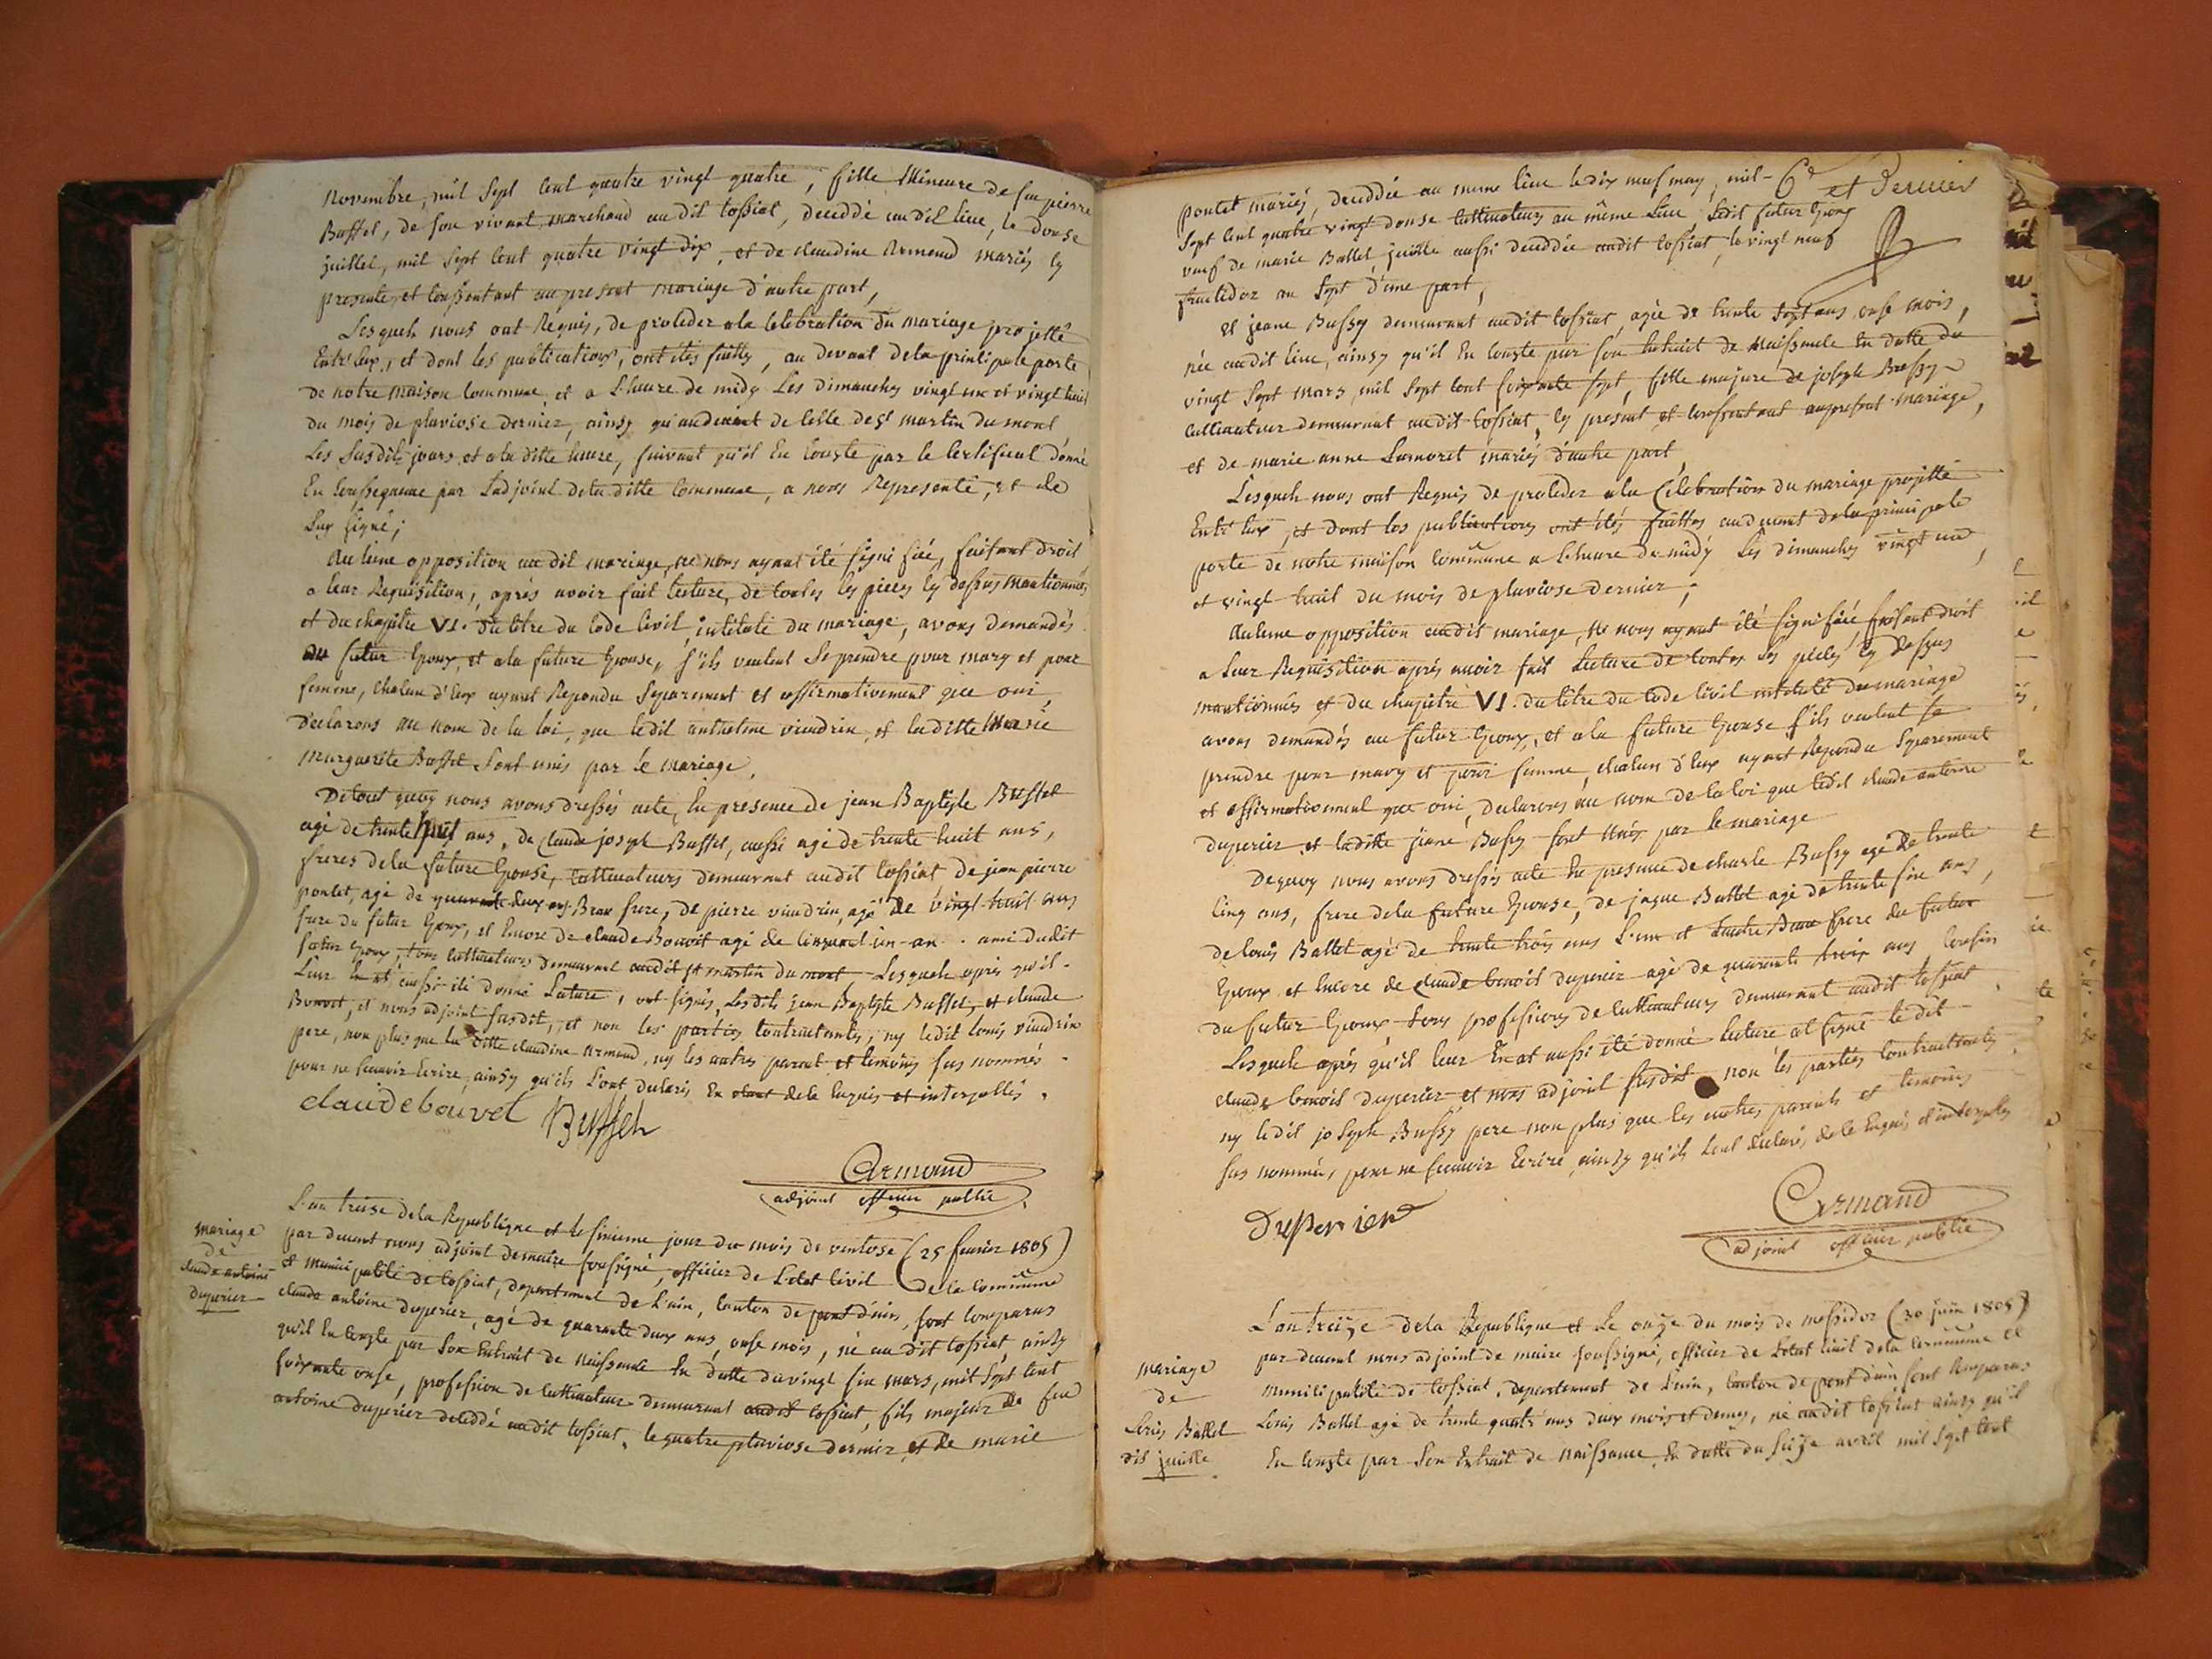 novembre, mil sept cent quatre vingt quatre, fille Mineure de feu pierre
Buffet, de son vivant marchand au dit tossiat, deceddé au dit lieu, le douse
juillet, mil sept cent quatre vingt dix, et de claudine Armand mariés cy
presente, et consentant au present mariage d'autre part,
Lesquels nous ont Réquis, de proceder a la Celebration du mariage projetté
Entr'Eux, et dont les publications, ont étés faittes, au devant dela principale porte
de notre maison commune et a L'heure de midy Les dimanches vingt un et vingt huit
du mois de pluviose dernier, ainsy qu'audevant de celle de st martin du mont
Les susdits jours et a la ditte heure, suivant qu'il En conste par le Certificat donné
En conssequence par Ladjoint dela ditte commune, a nous Representé, et de
Luy signé;
Aucune opposition au dit mariage, ne nous ayant été signifiée, faisant droit
a leur Requisition, aprés avoir fait lecture, de toutes les pieces cy dessus mantionnés
et du chapitre VI. du titre du Code Civil intitulé du mariage, avons demandés
au futur Epoux, et a la future Epouse, s'ils veulent se prendre pour mary et pour
femme, chacun d'Eux ayant Repondu Separement et affirmativement que oui,
declarons au nom de la loi, que ledit anthelme viaudrin, et laditte Marie
Marguerite Buffet Sont unis par le mariage.
De tout quoy nous avons dressés acte, En presence de jean Baptiste Buffet
agé de trente huit ans, de Claude joseph Buffet, aussi agé de trente huit ans,
freres dela future Epouse, Cultivateurs demeurant audit tossiat de jean pierre
poncet, agé de quarante deux ans Beau frere, de pierre viaudrin, agé de vingt huit ans
frere du futur Epoux, et Encore de claude Bouvet agé de Cinquant un an. ami dudit
futur Epoux, tous Cultivateurs demeurant audit st martin du mont Lesquels aprés qu'il
Leur En at aussi été donné Lecture, ont signés, Lesdits jean Baptiste Buffet, et claude
Bouvet, et nous adjoint susdit, et non les parties contractantes, ny ledit Louis viaudrin
pere, non plus que la ditte claudine Armand, ny les autres parent et temoins sus nommés
pour ne scavoir Ecrire, ainsy qu'ils L'ont declaré, En étant de ce Enquis et interpellés.
claudebouvet Buffet
Armand
adjoint officier public
mariage
de
claude antoine
duperier
L'an treise dela Republique et le sixieme jour du mois de ventose (25 fevrier 1805)
par devant nous adjoint demaire soussigné, officier de L'etat Civil de la Commune
et Municipalité de tossiat, departement de L'ain, Canton de pont d'ain, sont comparus
claude antoine duperier, agé de quarante deux ans, onse mois, né au dit tossiat ainsy
qu'il En conste par son Extrait de Naissance En datte du vingt six mars, mil Sept cent
soixante onse, profession de Cultivateur demeurant audit tossiat, fils majeur de feu
antoine duperier deceddé audit tossiat, le quatre pluviose dernier, et de marie
6e et Dernier
poncet mariés, deceddée au meme lieu le dix neuf may, mil
Sept cent quatre vingt douse Cultivateurs au même Lieu Ledit futur Epoux
veuf de marie Ballet juillle aussi deceddée audit tossiat, le vingt neuf
fructidor an Sept d'une part,
et jeane Bussy demeurant audit tossiat, agée de trente Sept ans onse mois,
née audit lieu, ainsy qu'il En conste par son Extrait de Naissance En datte du
vingt Sept mars, mil Sept cent soixante Sept, fille majeure de joseph Bussy
Cultivateur demeurant audit tossiat, Cy present et conssentant aupresent mariage,
et de marie anne Lamoret mariés d'autre part,
Lesquels nous ont Requis de proceder a la Célebration du mariage projetté
Entr'Eux, et dont les publications ont étés faittes audevant dela principale
porte de notre maison Commune a L'heure de midy Les dimanches vingt un
et vingt huit du mois de pluviose dernier;
Aucune opposition audit mariage, ne nous ayant été signifiée faisant droit
a Leur Requisition aprés avoir fait Lecture de toutes les piéces Cy dessus
mantionnés et du chapitre VI. du titre du Code Civil intitulé du mariage
avons demandés au futur Epoux, et a la future Epouse s'ils veulent se
prendre pour mary et pour femme, chacun d'Eux ayant Repondu Separement
et affirmativement que oui, declarons au nom de la loi que ledit claude antoine
duperier et laditte jeane Bussy sont Unis par le mariage
Dequoy nous avons dressés acte En presence de charle Bussy agé de trente
Cinq ans, frere dela future Epouse, de jaque Ballet agé de trente six ans,
de louis Ballet agé de trente trois ans L'un et Lautre Beau frere du futur
Epoux et Encore de claude benoit duperier agé de quarante trois ans Cousin
du futur Epoux tous professions de Cultivateurs demeurant audit tossiat
Lesquels aprés qu'il leur En at aussi été donné lecture at signé le dit
claude benoit duperier et nous adjoint susdit non les parties contractantes
ny ledit joseph Bussy pere non plus que les autres parents et temoins
sus nommés, pour ne scavoir Ecrire ainsy qu'ils L'ont declaré, de ce Enquis et interpelés
Duperrier
Armand
adjoint officier public
mariage
de
Louis Ballet
dit juille
L'an treize dela Republique et Le onze du mois de messidor (30 juin 1805)
par devant nous adjoint de maire soussigné, officier de L'etat Civil dela Commune et
Municipalité de tossiat, departement de Lain, Canton de pont d'ain sont Comparus
Louis Ballet agé de trente quatr'ans deux mois et demy, né audit tossiat ainsy qu'il
En conste par Son Extrait de Naissance, En datte du Seize avril mil Sept cent